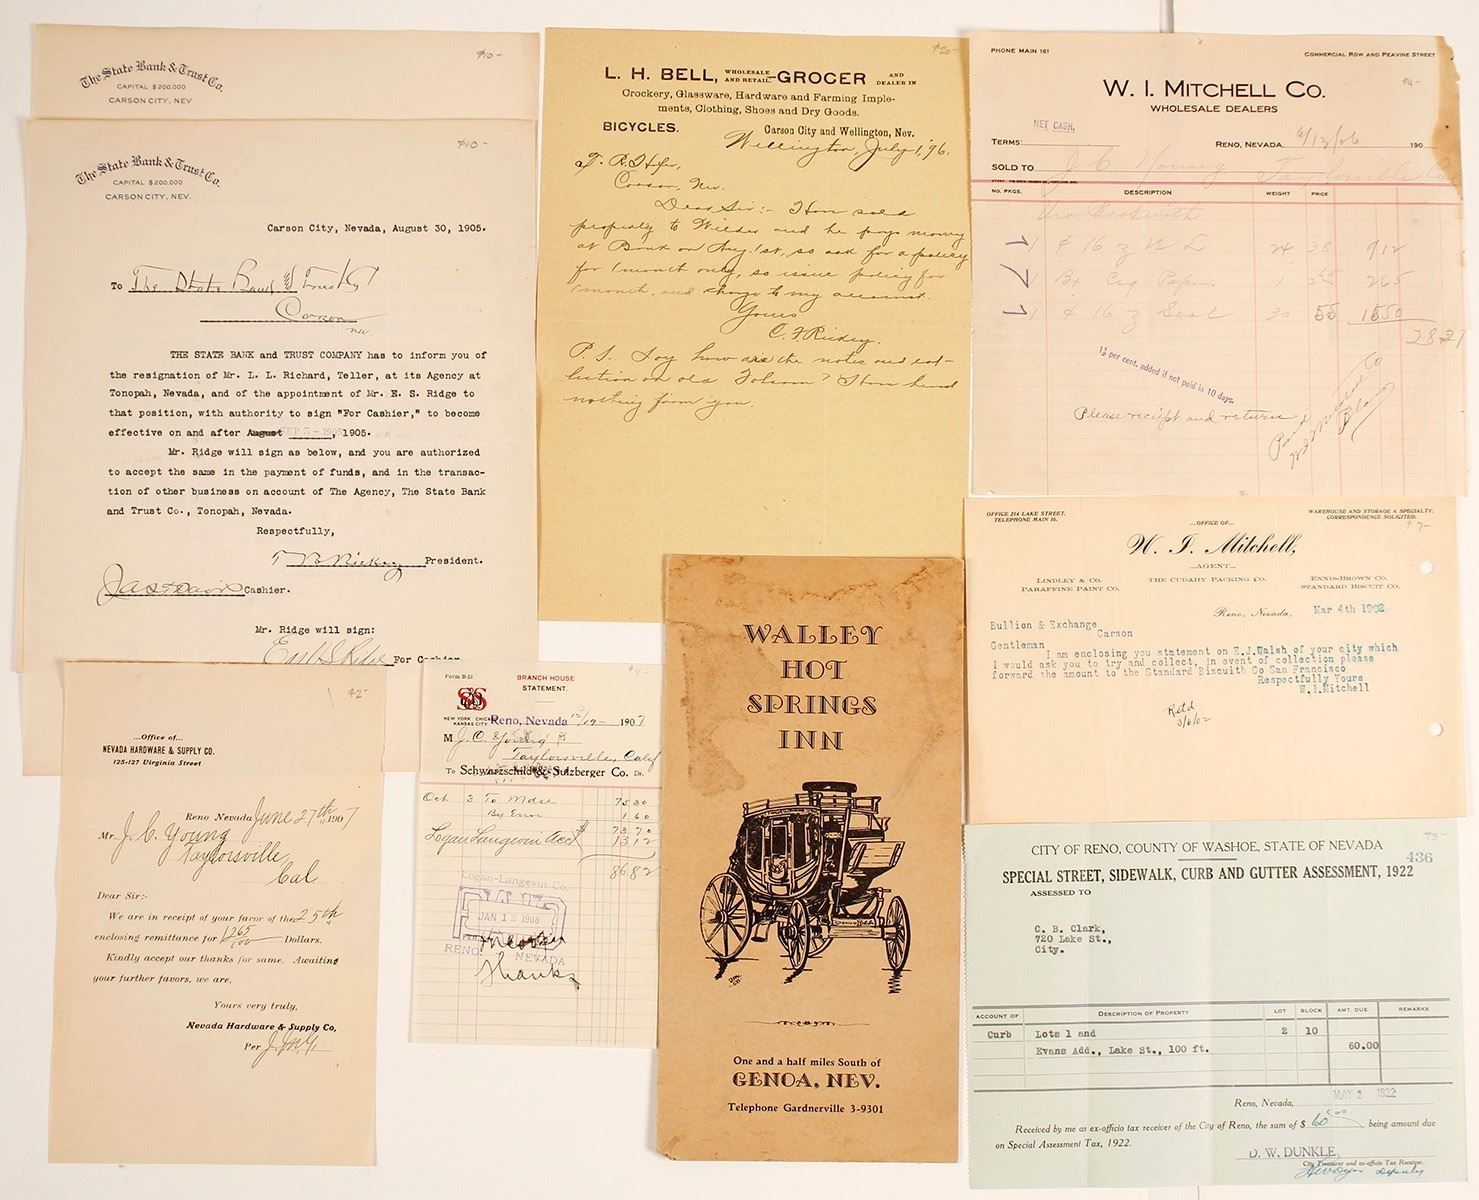 $10-
The State Bank & Trust Co.
CAPITAL $200,000
CARSON CITY, NEV
$10-
The State Bank & Trust Co.
CAPITAL $200,000
CARSON CITY, NEV.
Carson City, Nevada, August 30, 1905.
To The State Bank & Trust Co
Carson
Nev
THE STATE BANK and TRUST COMPANY has to inform you of
the resignation of Mr. L. L. Richard, Teller, at its Agency at
Tonopah, Nevada, and of the appointment of Mr. E. S. Ridge to
that position, with authority to sign "For Cashier," to become
effective on and after August SEP 5 - 1905, 1905.
Mr. Ridge will sign as below, and you are authorized
to accept the same in the payment of funds, and in the transac-
tion of other business on account of The Agency, The State Bank
and Trust Co., Tonopah, Nevada.
Respectfully,
T B Rickey President.
Cashier.
Mr. Ridge will sign:
For Cashier
$20-
L. H. BELL, WHOLESALE AND RETAIL GROCER AND DEALER IN
Crockery, Glassware, Hardware and Farming Imple-
ments, Clothing, Shoes and Dry Goods.
BICYCLES.
Carson City and Wellington, Nev.
Wellington, July 1, '96.
Carson, Nev.
Dear Sir:- I have sold
property to Wilder and he pays money
at Bank on Aug. 1st, so ask for a policy
for 1 month only, so issue policy for
1 month, and charge to my account.
Yours
C. F. Rickey.
P. S. Say how are the notes and col-
lection on old Folsom? I have heard
nothing from you.
PHONE MAIN 161
COMMERCIAL ROW AND PEAVINE STREET
$4-
W. I. MITCHELL CO.
WHOLESALE DEALERS
NET CASH.
TERMS:
RENO, NEVADA. 6/13/06 190
SOLD TO J C Young Taylorsville Cal
No. PKGS. DESCRIPTION WEIGHT PRICE
1 16 z N L 24 38 912
1 Bx Cig Papers 1 265 265
1 16 z Seal 30 55 1650
2827
1½ per cent. added if not paid in 10 days.
Please receipt and return
Paid
W I Mitchell Co
OFFICE 214 LAKE STREET.
TELEPHONE MAIN 16.
WAREHOUSE AND STORAGE A SPECIALTY.
CORRESPONDENCE SOLICITED.
$7-
...OFFICE OF...
W. I. Mitchell,
...AGENT...
LINDLEY & CO.
PARAFFINE PAINT CO.
THE CUDAHY PACKING CO.
ENNIS-BROWN CO.
STANDARD BISCUIT CO.
Reno, Nevada, Mar 4th 1902
Bullion & Exchange
Carson
Gentleman
I am enclosing you statement on E.J.Walsh of your city which
I would ask you to try and collect, in event of collection please
forward the amount to the Standard Biscuitb Co San Francisco
Respectfully Yours
W.I.Mitchell
Retd
3/6/02
$2-
...Office of...
NEVADA HARDWARE & SUPPLY CO.
125-127 Virginia Street
Reno Nevada June 27th 1907
Mr. J. C. Young
Taylorsville,
Cal.
Dear Sir:-
We are in receipt of your favor of the 25th
enclosing remittance for 1265/100 Dollars.
Kindly accept our thanks for same. Awaiting
your further favors, we are,
Yours very truly,
Nevada Hardware & Supply Co,
Per
Form B-13
BRANCH HOUSE
STATEMENT.
$4-
NEW YORK CHICAGO
KANSAS CITY
Reno, Nevada 12/29- 1907
M J. C. Young
Taylorsville, Calif
To Schwarzschild & Sulzberger Co. Dr.
Oct 3 To Mdse 75 30
By Error 1 60
73 70
Logan Langevin Acct 13 12
86 82
Logan-Langevin Co.
PAID
JAN 12 1908
RENO, NEVADA
Thanks
WALLEY
HOT
SPRINGS
INN
One and a half miles South of
GENOA, NEV.
Telephone Gardnerville 3-9301
$3-
CITY OF RENO, COUNTY OF WASHOE, STATE OF NEVADA
436
SPECIAL STREET, SIDEWALK, CURB AND GUTTER ASSESSMENT, 1922
ASSESSED TO
C. B. Clark,
720 Lake St.,
City.
ACCOUNT OF DESCRIPTION OF PROPERTY LOT BLOCK AMT. DUE REMARKS
Curb Lots 1 and 2 10
Evans Add., Lake St., 100 ft. 60.00
Reno, Nevada, MAY 2 1922
Received by me as ex-officio tax receiver of the City of Reno, the sum of $ 60.00 being amount due
on Special Assessment Tax, 1922.
D. W. DUNKLE,
City Treasurer and ex-officio Tax Receiver.
Deputy